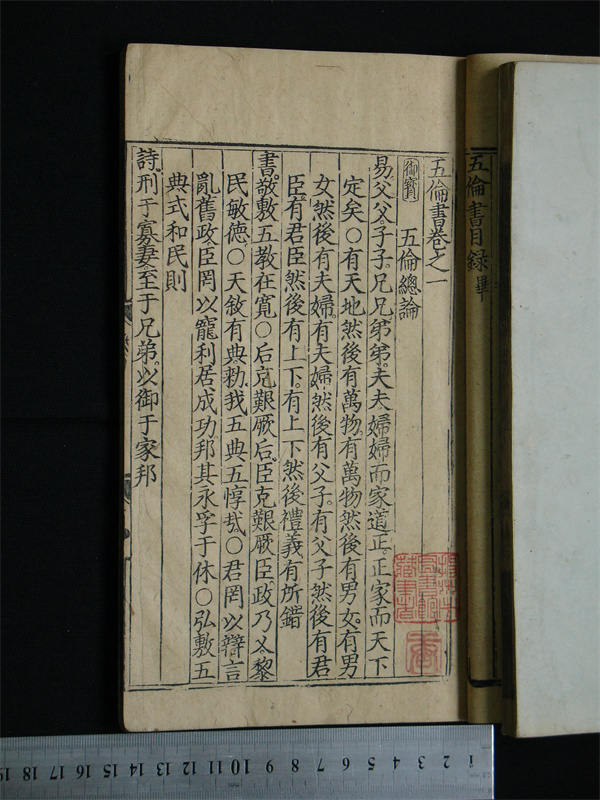 五倫書目録畢
五倫書卷之一
御寶 五倫總論
易父父子子兄兄弟弟。夫夫婦婦而家道正。正家而天下
定矣○有天地然後有萬物。有萬物然後有男女。有男
女然後有夫婦。有夫婦然後有父子。有父子然後有君
臣。有君臣然後有上下。有上下然後禮義有所錯
書。敬敷五教在寬○后克艱厥后。臣克艱厥臣。政乃乂。黎
民敏德。○天敘有典勑我五典五惇哉。○君罔以辯言
亂舊政。臣罔以寵利居成功邦其永孚于休○弘敷五
典式和民則
詩。刑于寡妻。至于兄弟。以御于家邦
1 2 3 4 5 6 7 8 9 10 11 12 13 14 15 16 17 18 19